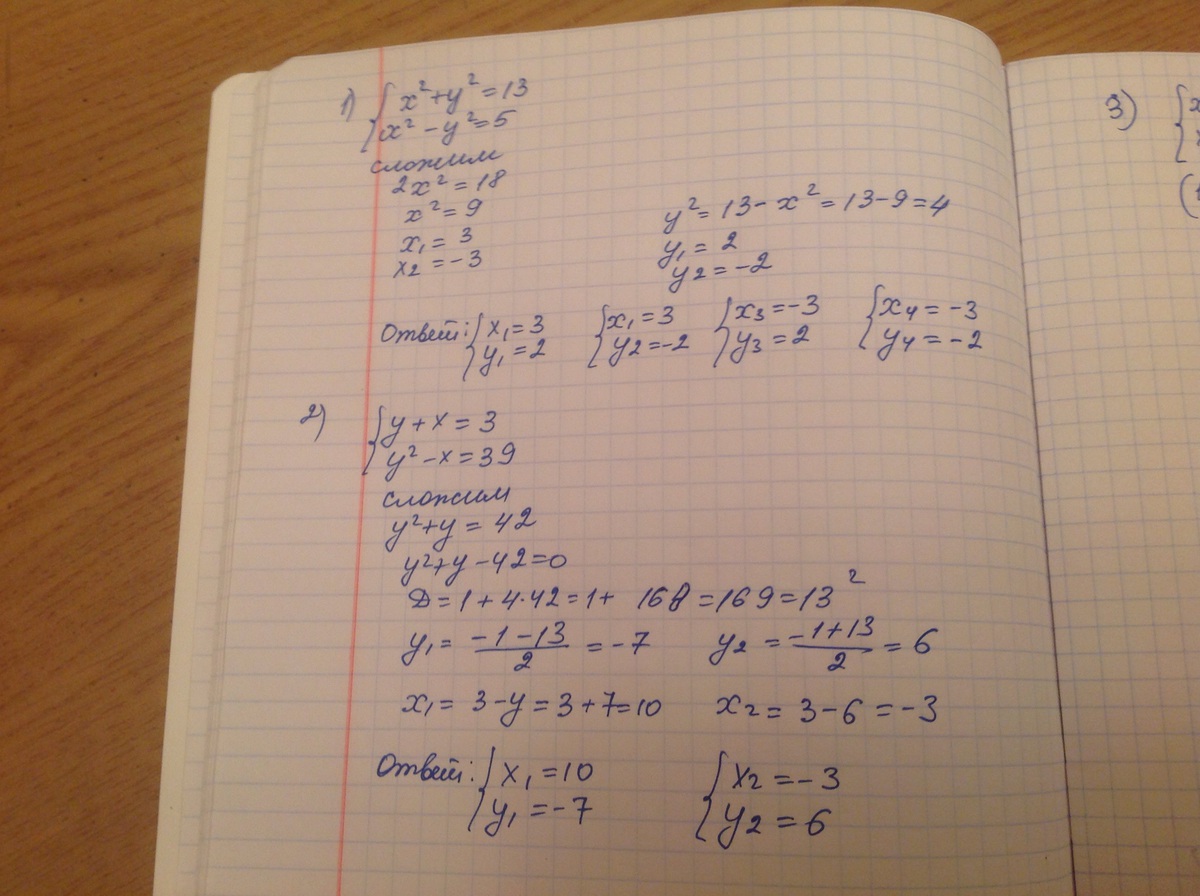 1) { x² + y² = 13
x² - y² = 5
сложим
2x² = 18
x² = 9
x₁ = 3
x₂ = -3
y² = 13 - x² = 13 - 9 = 4
y₁ = 2
y₂ = -2
Ответ: { x₁ = 3 { x₁ = 3 { x₃ = -3 { x₄ = -3
y₁ = 2 y₂ = -2 y₃ = 2 y₄ = -2
2) { y + x = 3
y² - x = 39
сложим
y² + y = 42
y² + y - 42 = 0
D = 1 + 4·42 = 1 + 168 = 169 = 13²
y₁ = (-1 - 13)/2 = -7 y₂ = (-1 + 13)/2 = 6
x₁ = 3 - y = 3 + 7 = 10 x₂ = 3 - 6 = -3
Ответ: { x₁ = 10 { x₂ = -3
y₁ = -7 y₂ = 6
3) {